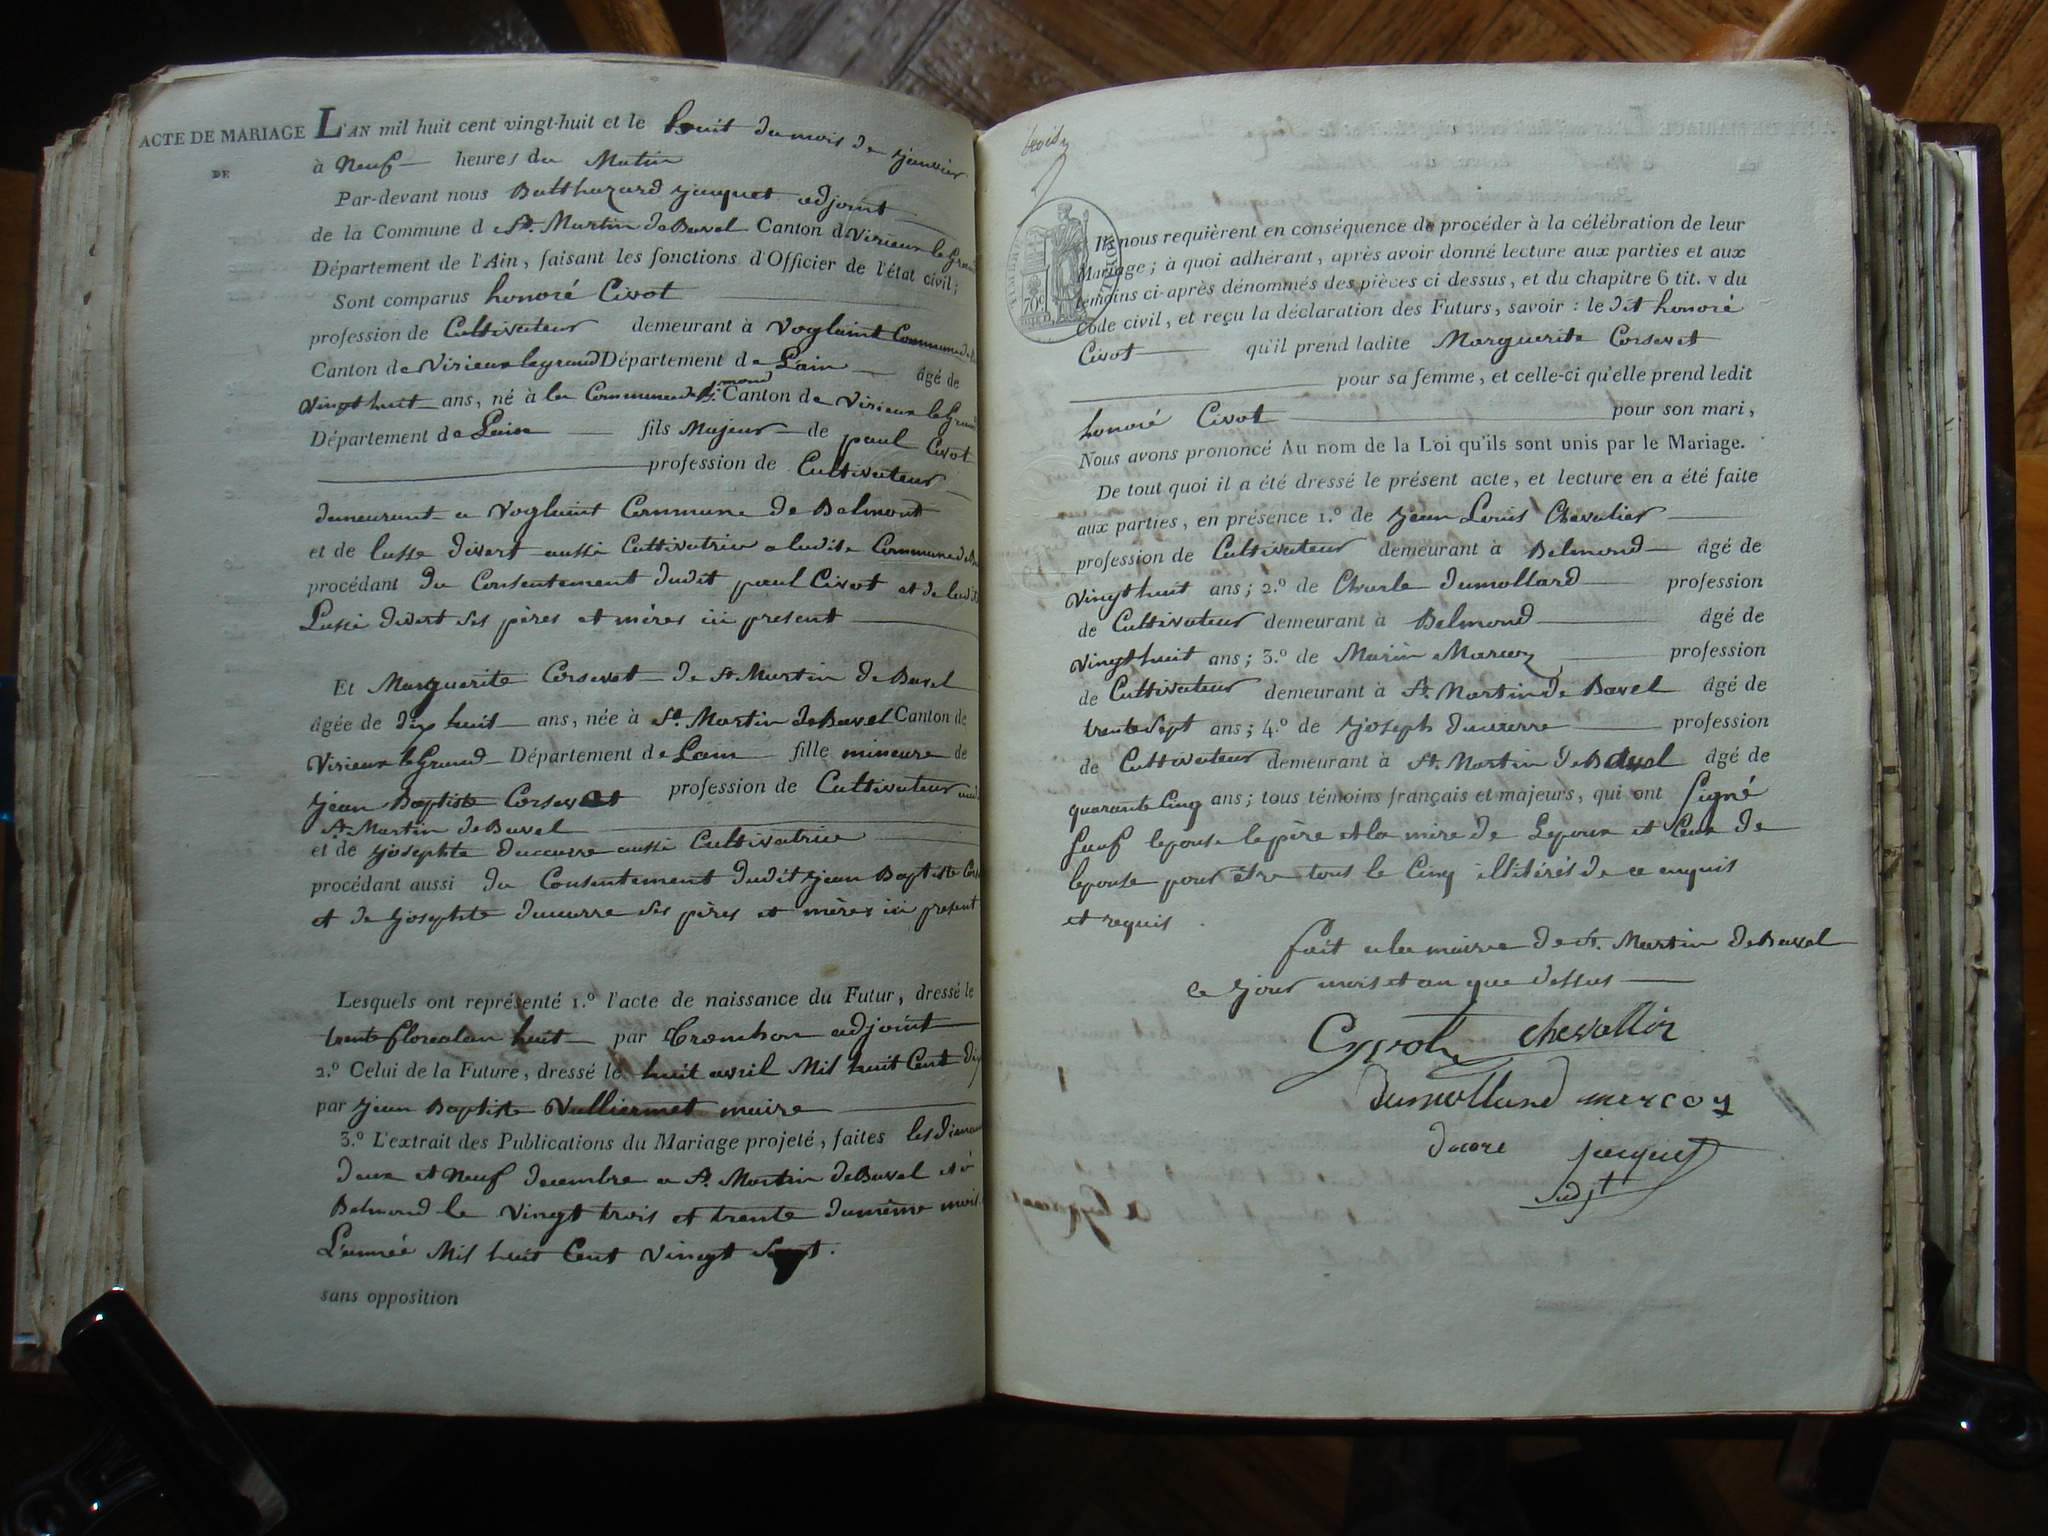 ACTE DE MARIAGE L'AN mil huit cent vingt-huit et le huit du mois de janvier
DE
à Neuf heures du Matin
Par-devant nous Balthazard jacquet adjoint
de la Commune d St. Martin de Bavel Canton d Virieux le Grand
Département de l'Ain, faisant les fonctions d'Officier de l'état civil;
Sont comparus honoré Civot
profession de Cultivateur demeurant à Voglaint Commune de
Canton de Virieux legrand Département de Lain âgé de
vingt huit ans, né à la Commune de Canton de Virieux le Grand
Département de Lain fils Majeur de paul Civot
profession de Cultivateur
demeurant a Voglaint Commune de Belmont
et de lusse divert aussi Cultivatrice a ladite Commune de
procédant du Consentement dudit paul Civot et de ladite
Lusse divert ses pères et mères ici present
Et Marguerite Corsevet de St. Martin de Bavel
âgée de dix huit ans, née à St. Martin de Bavel Canton de
Virieux le Grand Département de Lain fille mineure de
jean Baptiste Corsevet profession de Cultivateur
St. Martin de Bavel
et de josephte ducurre aussi Cultivatrice
procédant aussi du Consentement dudit jean Baptiste
et de josephte ducurre ses pères et mères ici present
Lesquels ont représenté 1.º l'acte de naissance du Futur, dressé le
trente florealan huit par adjoint
2.º Celui de la Future, dressé le huit avril Mil huit Cent dix
par jean Baptiste Vulliermet maire
3.º L'extrait des Publications du Mariage projeté, faites les
deux et Neuf decembre a St. Martin de Bavel et à
Belmond le Vingt trois et trente dumême mois
L'année Mil huit Cent Vingt Sept.
sans opposition
70c
Ils nous requièrent en conséquence de procéder à la célébration de leur
Mariage; à quoi adhérant, après avoir donné lecture aux parties et aux
témoins ci-après dénommés des pièces ci dessus, et du chapitre 6 tit. v du
Code civil, et reçu la déclaration des Futurs, savoir: le dit honoré
Civot qu'il prend ladite Marguerite Corsevet
pour sa femme, et celle-ci qu'elle prend ledit
honoré Civot pour son mari,
Nous avons prononcé Au nom de la Loi qu'ils sont unis par le Mariage.
De tout quoi il a été dressé le présent acte, et lecture en a été faite
aux parties, en présence 1.º de jean Louis Chevalier
profession de Cultivateur demeurant à Belmond âgé de
vingt huit ans; 2.º de Charle dumollard profession
de Cultivateur demeurant à Belmond âgé de
vingt huit ans; 3.º de Marin Marcoz profession
de Cultivateur demeurant à St. Martin de Bavel âgé de
trente Sept ans; 4.º de joseph ducurre profession
de Cultivateur demeurant à St. Martin de Bavel âgé de
quarante Cinq ans; tous témoins français et majeurs, qui ont Signé
Sauf lepouse lepère et la mère de Lepoux et Ceux de
lepouse pour être tous le Cinq illitérés de ce enquis
et requis
fait a la mairie de St. Martin de Bavel
ce jour mois et an que dessus
Cyvot chevallier
dumollard mercoz
jacquet
adjt